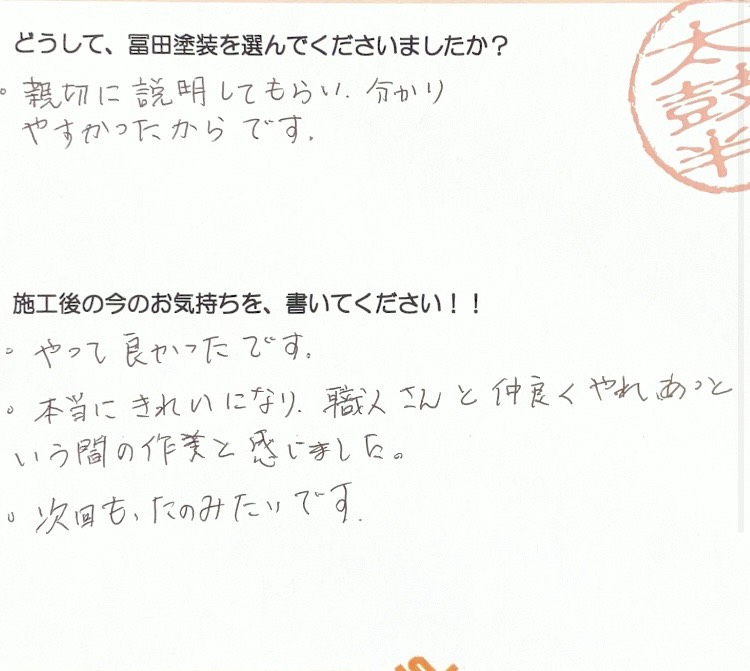 どうして、冨田塗装を選んでくださいましたか？
太鼓判
。親切に説明してもらい、分かり
やすかったからです。
施工後の今のお気持ちを、書いてください！！
。やって良かったです。
。本当にきれいになり、職人さんと仲良くやれ、あっと
いう間の作業と感じました。
。次回も、たのみたいです。